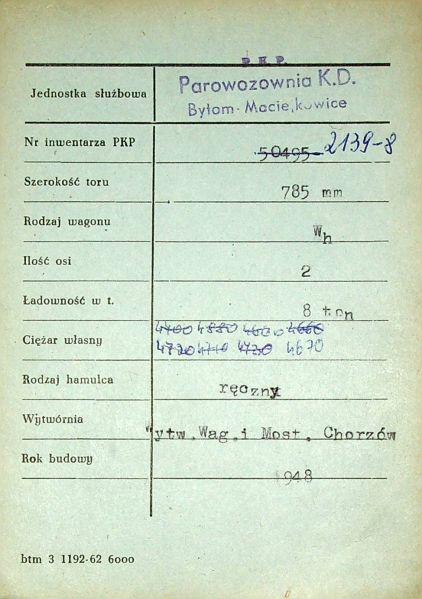 P.K.P.
Parowozownia K.D.
Bytom-Maciejkowice
Jednostka służbowa
Nr inwentarza PKP 50495 2139-8
Szerokość toru 785 mm
Rodzaj wagonu Wh
Ilość osi 2
Ładowność w t. 8 ton
4700 4880 4660
Ciężar własny 4720 4710 4730 4670
Rodzaj hamulca ręczny
Wytwórnia Wytw.Wag.i Most. Chorzów
Rok budowy 1948
btm 3 1192-62 6000